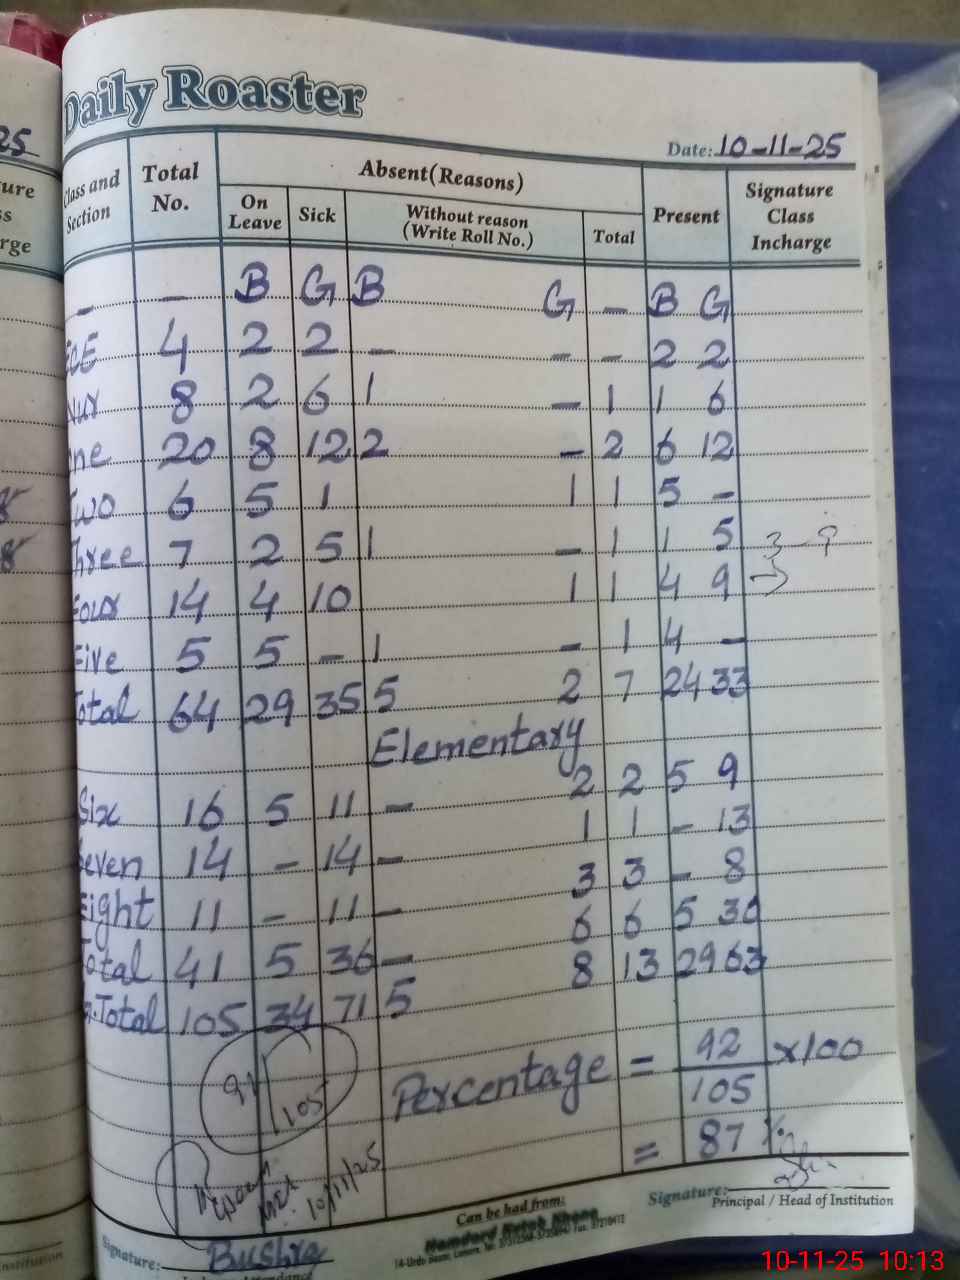 25
Daily Roaster
Date: 10-11-25
Class and Section
Total No.
Absent(Reasons)
On Leave
Sick
Without reason (Write Roll No.)
Total
Present
Signature Class Incharge
– – B G B G – B G
ECE 4 2 2 – – – 2 2
Nur 8 2 6 1 – 1 1 6
One 20 8 12 2 – 2 6 12
Two 6 5 1 1 1 5 –
Three 7 2 5 1 – 1 1 5
Four 14 4 10 1 1 4 9
Five 5 5 – 1 – 1 4 –
Total 64 29 35 5 2 7 24 33
Elementary
Six 16 5 11 – 2 2 5 9
Seven 14 – 14 – 1 1 – 13
Eight 11 – 11 – 3 3 – 8
Total 41 5 36 – 6 6 5 30
G.Total 105 34 71 5 8 13 29 63
Percentage = 92/105 ×100
= 87 %
91/105
10/11/25
Signature:
Principal / Head of Institution
Can be had from:
Signature: Bushra
10-11-25 10:13